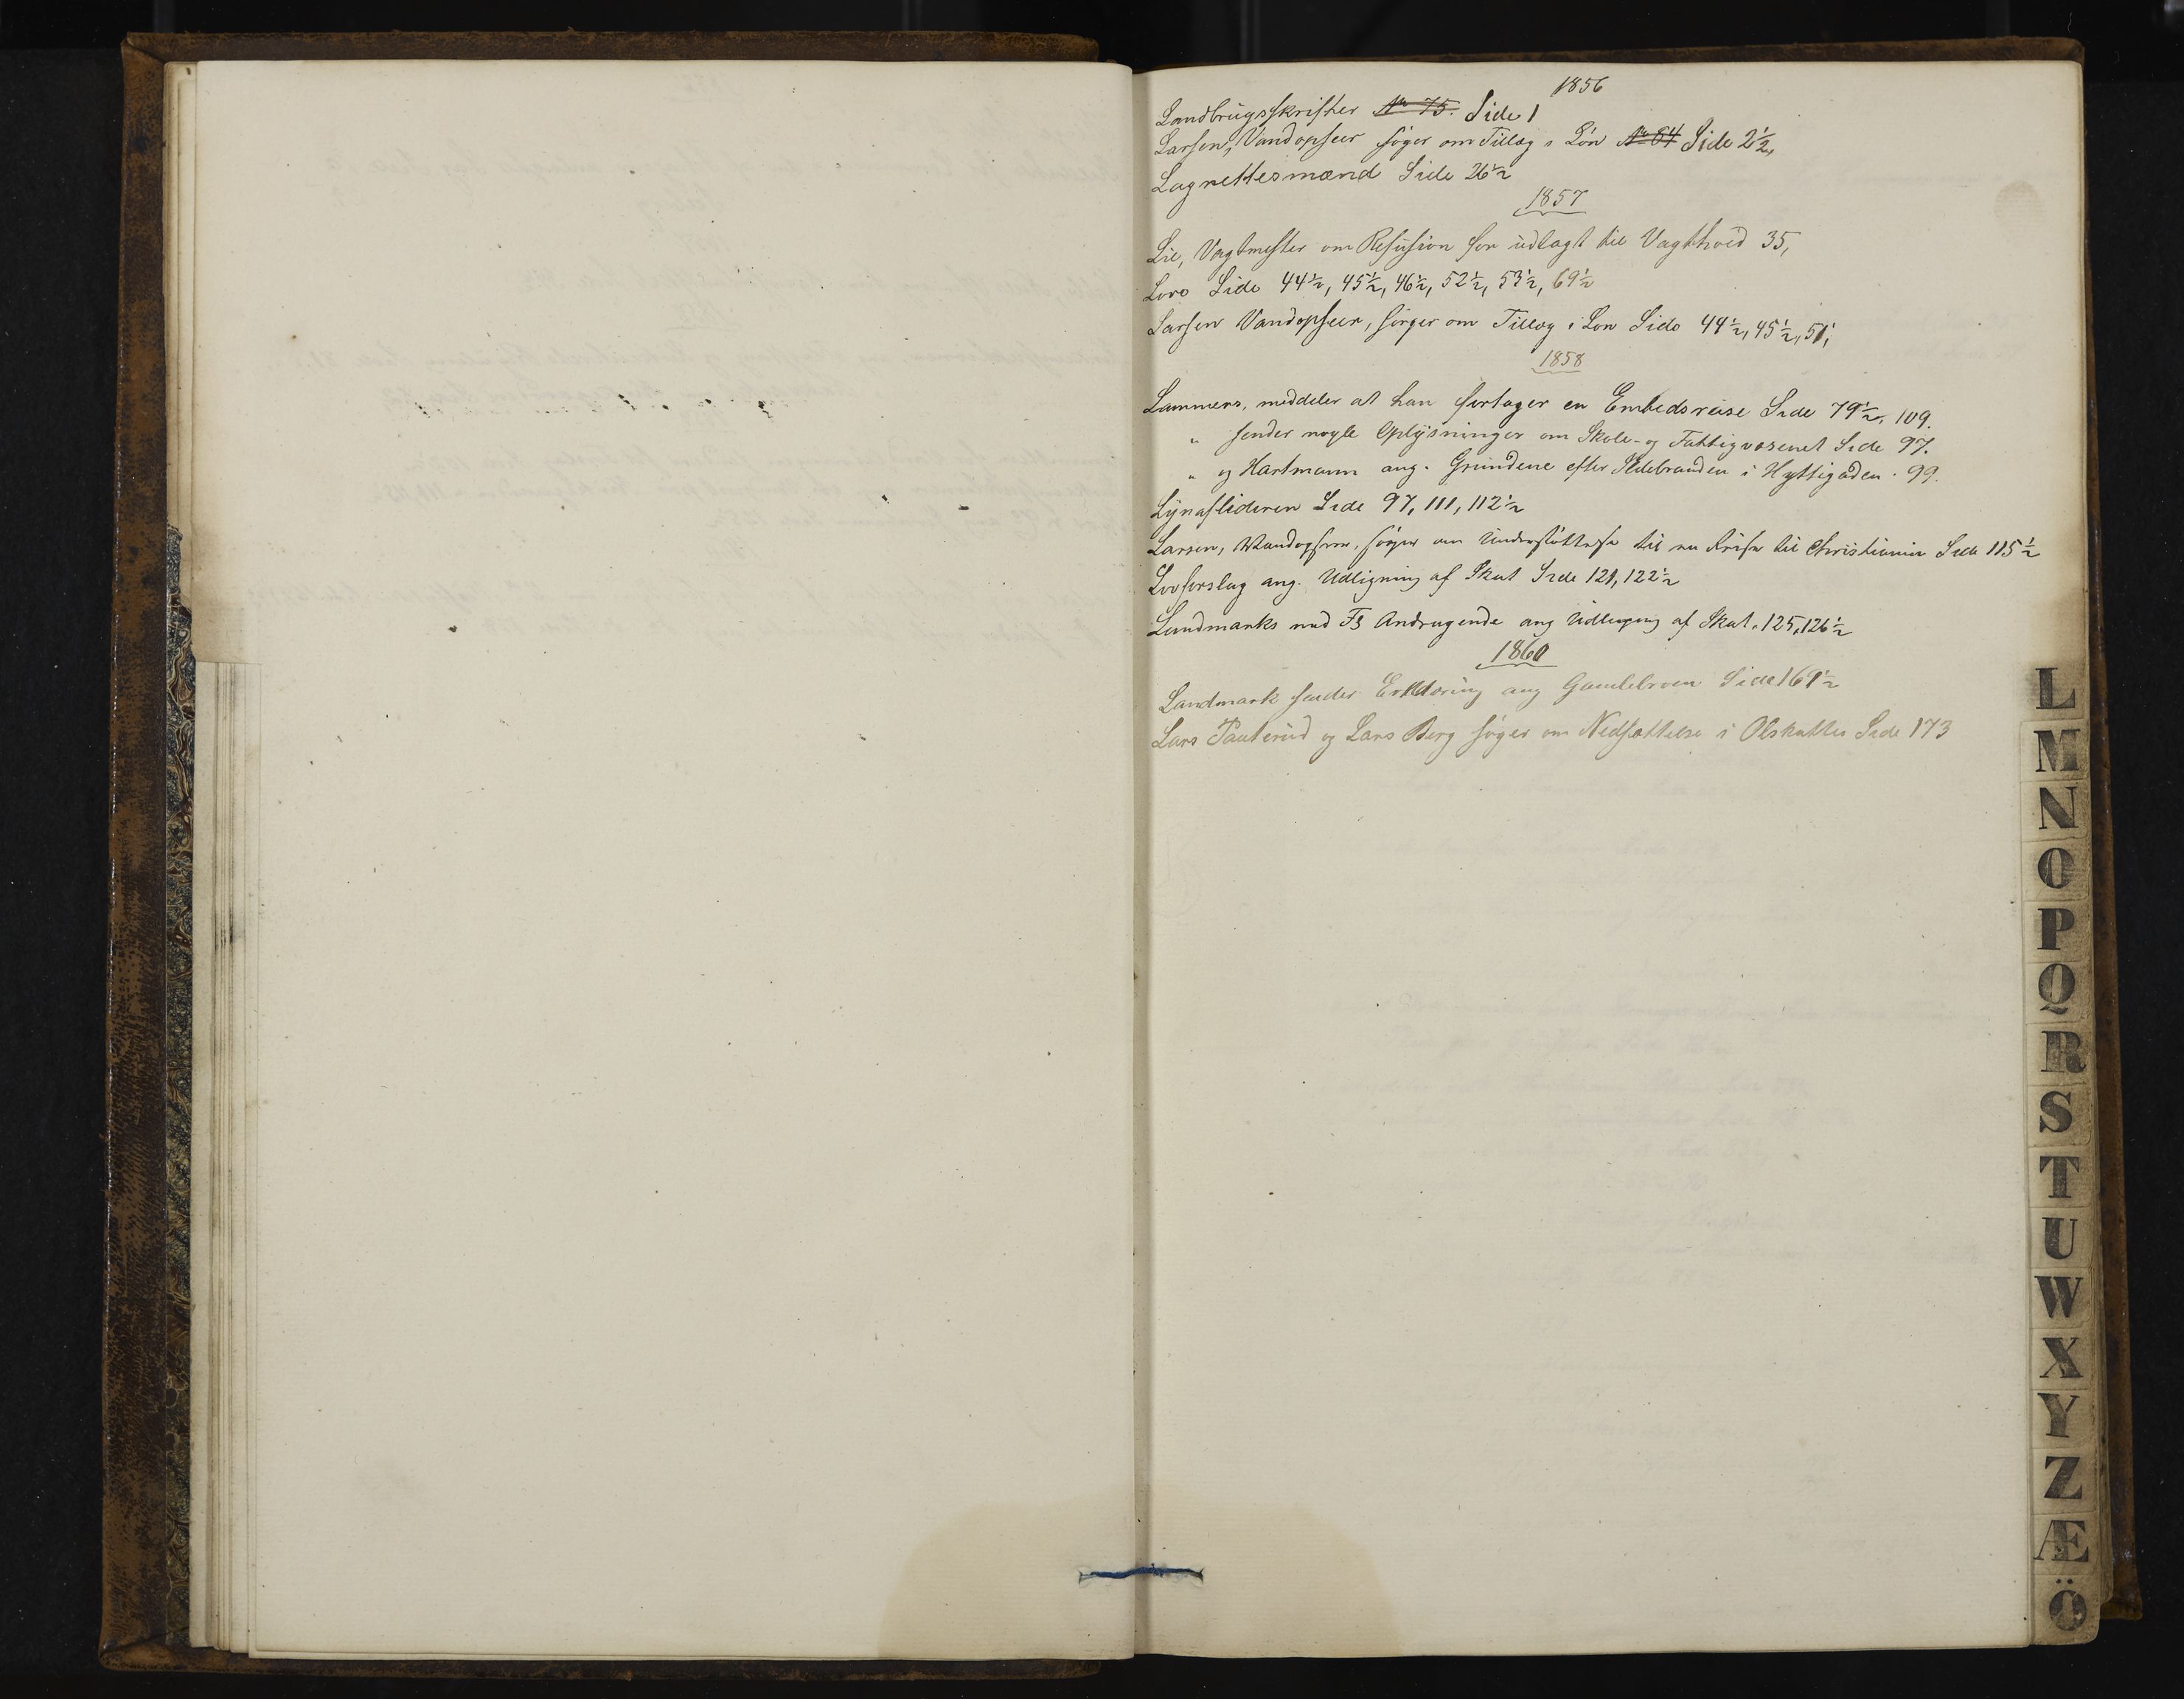 1856
Landbrugsskrifter No 75. Side 1
Larsen, Vandopseer søger om Tillæg i Løn No 84 Side 2½,
Lagrettesmænd Side 26½
1857
Lie, Vagtmester om Refusion for udlagt til Vagthold 35,
Love Side 44½, 45½, 46½, 52½, 53½, 69½
Larsen Vandopseer, søger om Tillæg i Løn Side 44½, 45½, 51,
1858
Lammers, meddeler at han foretager en Embedsreise Side 79½, 109.
" sender nogle Oplysninger om Skole- og Fattigvæsenet Side 97.
" og Hartmann ang. Grundene efter Ildebranden i Hyttegaden. 99.
Lynafliderен Side 97, 111, 112½
Larsen, Vandopseer, søger om Understøttelse til en Reise til Christiania Side 115½
Lovforslag ang. Udligning af Skat Side 121, 122½
Landmarks med Fl Andragende ang Udligning af Skat. 125, 126½
1860
Landmark sender Erklæring ang Gamlebroen Side 169½
Lars og Lars Berg søger om Nedsættelse i Side 173
L
M
N
O
P
Q
R
S
T
U
W
X
Y
Z
Æ
Ö